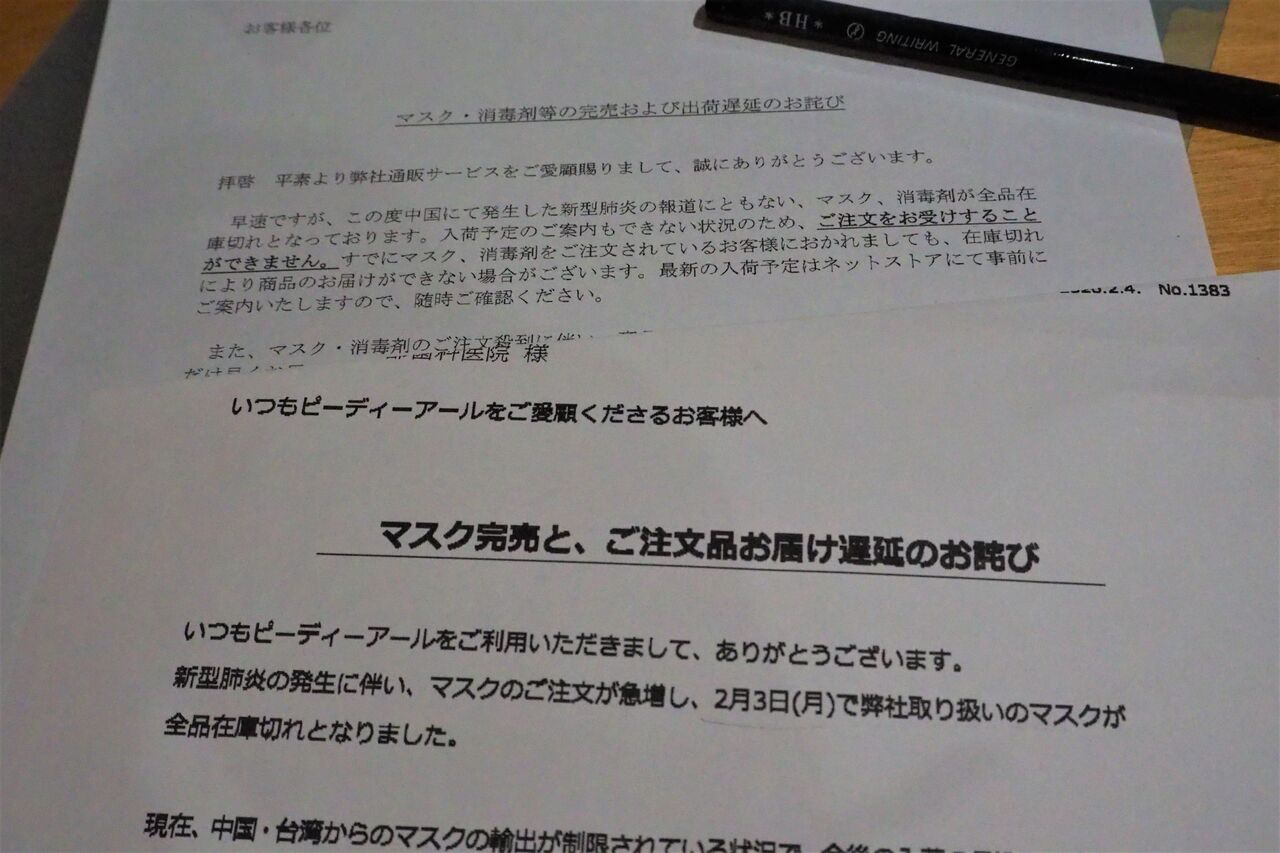 お客様各位
*HB*
GENERAL WRITING
マスク・消毒剤等の完売および出荷遅延のお詫び
拝啓 平素より弊社通販サービスをご愛顧賜りまして、誠にありがとうございます。
早速ですが、この度中国にて発生した新型肺炎の報道にともない、マスク、消毒剤が全品在
庫切れとなっております。入荷予定のご案内もできない状況のため、ご注文をお受けすること
ができません。すでにマスク、消毒剤をご注文されているお客様におかれましても、在庫切れ
により商品のお届けができない場合がございます。最新の入荷予定はネットストアにて事前に
ご案内いたしますので、随時ご確認ください。
また、マスク・消毒剤のご注文殺到に伴い、
2.4. No.1383
歯科医院 様
いつもピーディーアールをご愛顧くださるお客様へ
マスク完売と、ご注文品お届け遅延のお詫び
いつもピーディーアールをご利用いただきまして、ありがとうございます。
新型肺炎の発生に伴い、マスクのご注文が急増し、2月3日(月)で弊社取り扱いのマスクが
全品在庫切れとなりました。
現在、中国・台湾からのマスクの輸出が制限されている状況で、今後の入荷の